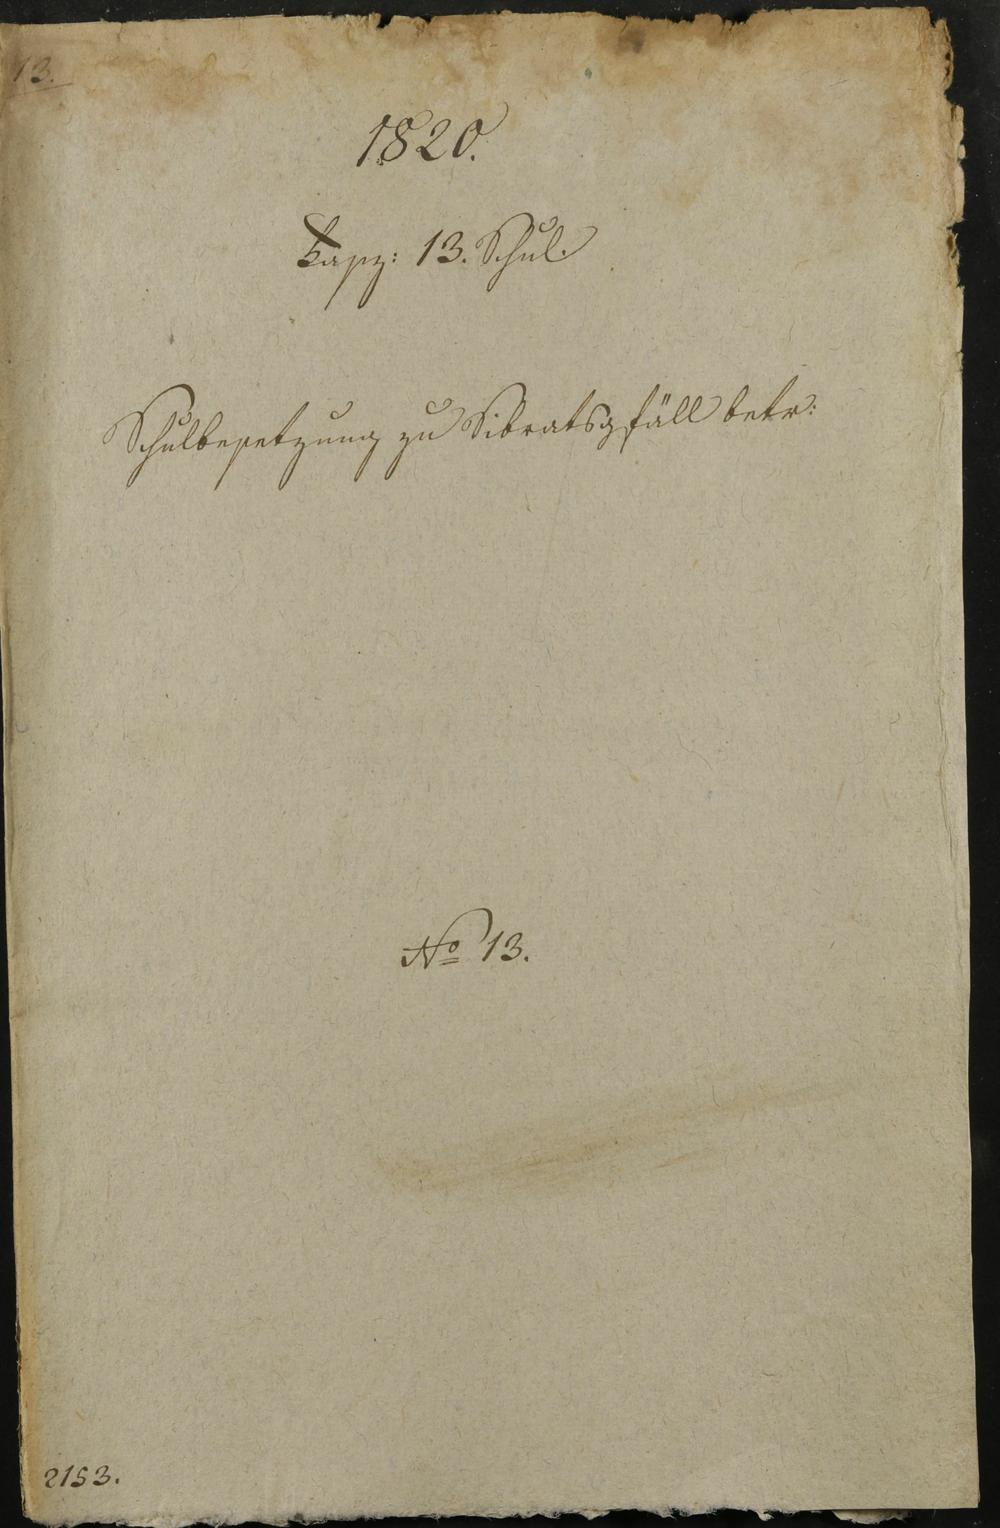 13.
1820.
Fasz: 13. Schul.
Schulbesetzung zu Sibratsgfäll betr:
No 13.
2153.